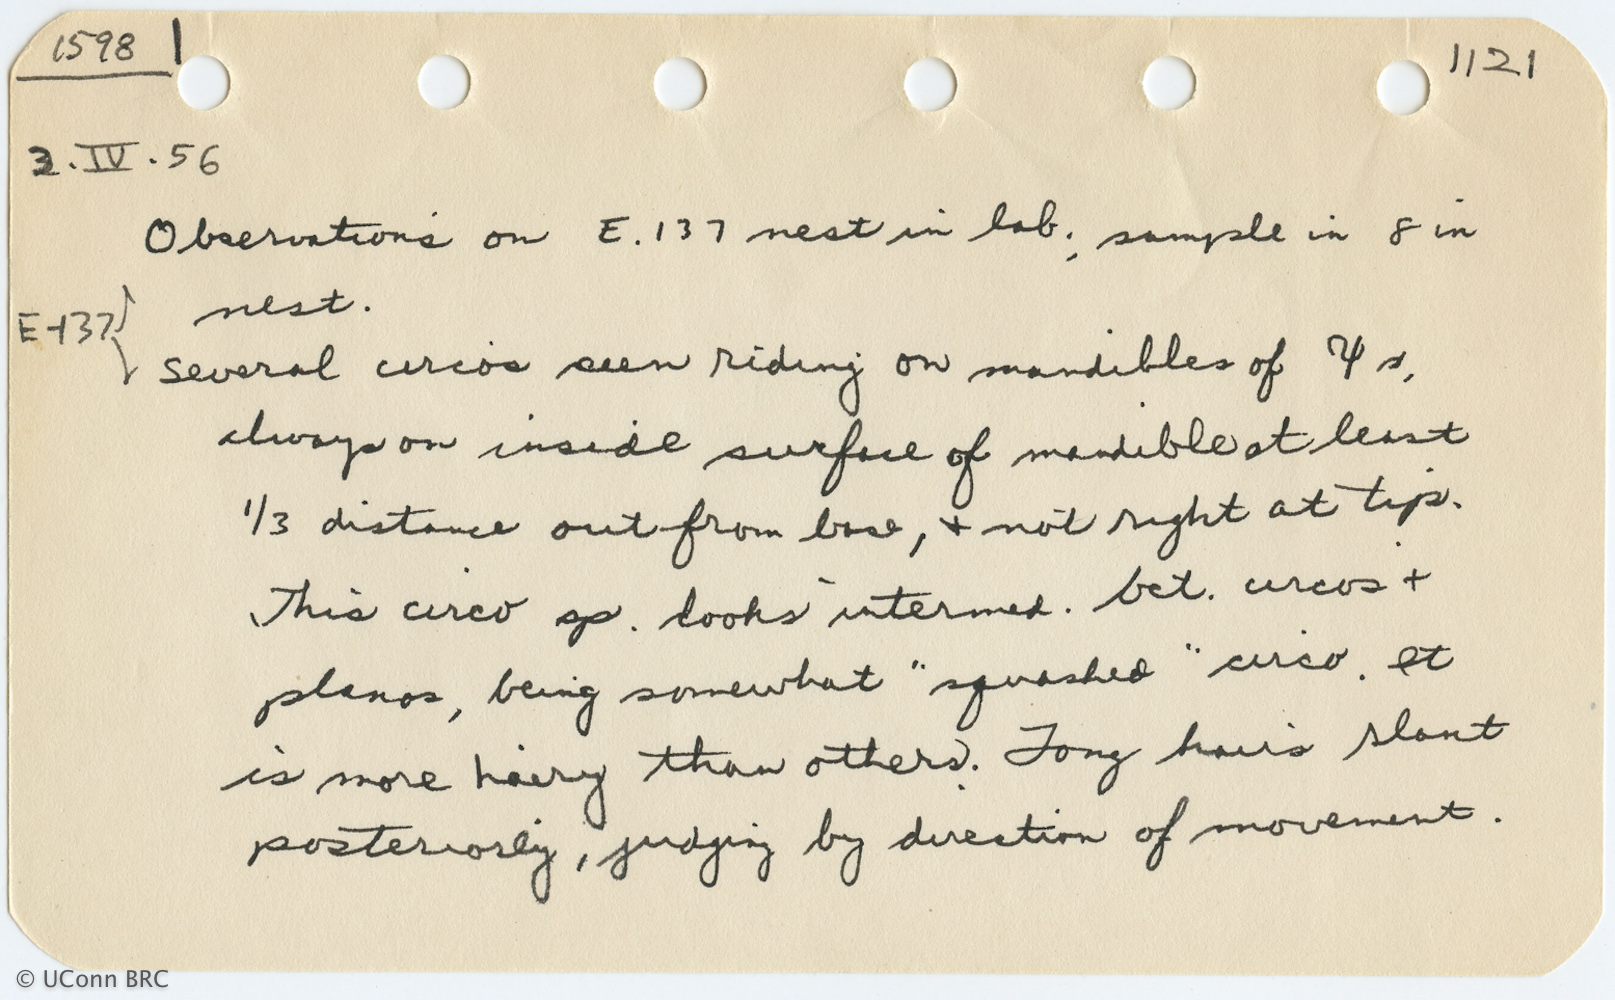 1598
1121
2.IV.56
Observations on E.137 nest in lab; sample in 8 in
nest.
E-137
Several circos seen riding on mandibles of ♃s,
always on inside surface of mandible at least
1/3 distance out from base, + not right at tip.
This circo sp. looks intermed. bet. circos +
planos, being somewhat "squashed" circo. et
is more hairy than others. Long hairs slant
posteriorly, judging by direction of movement.
© UConn BRC